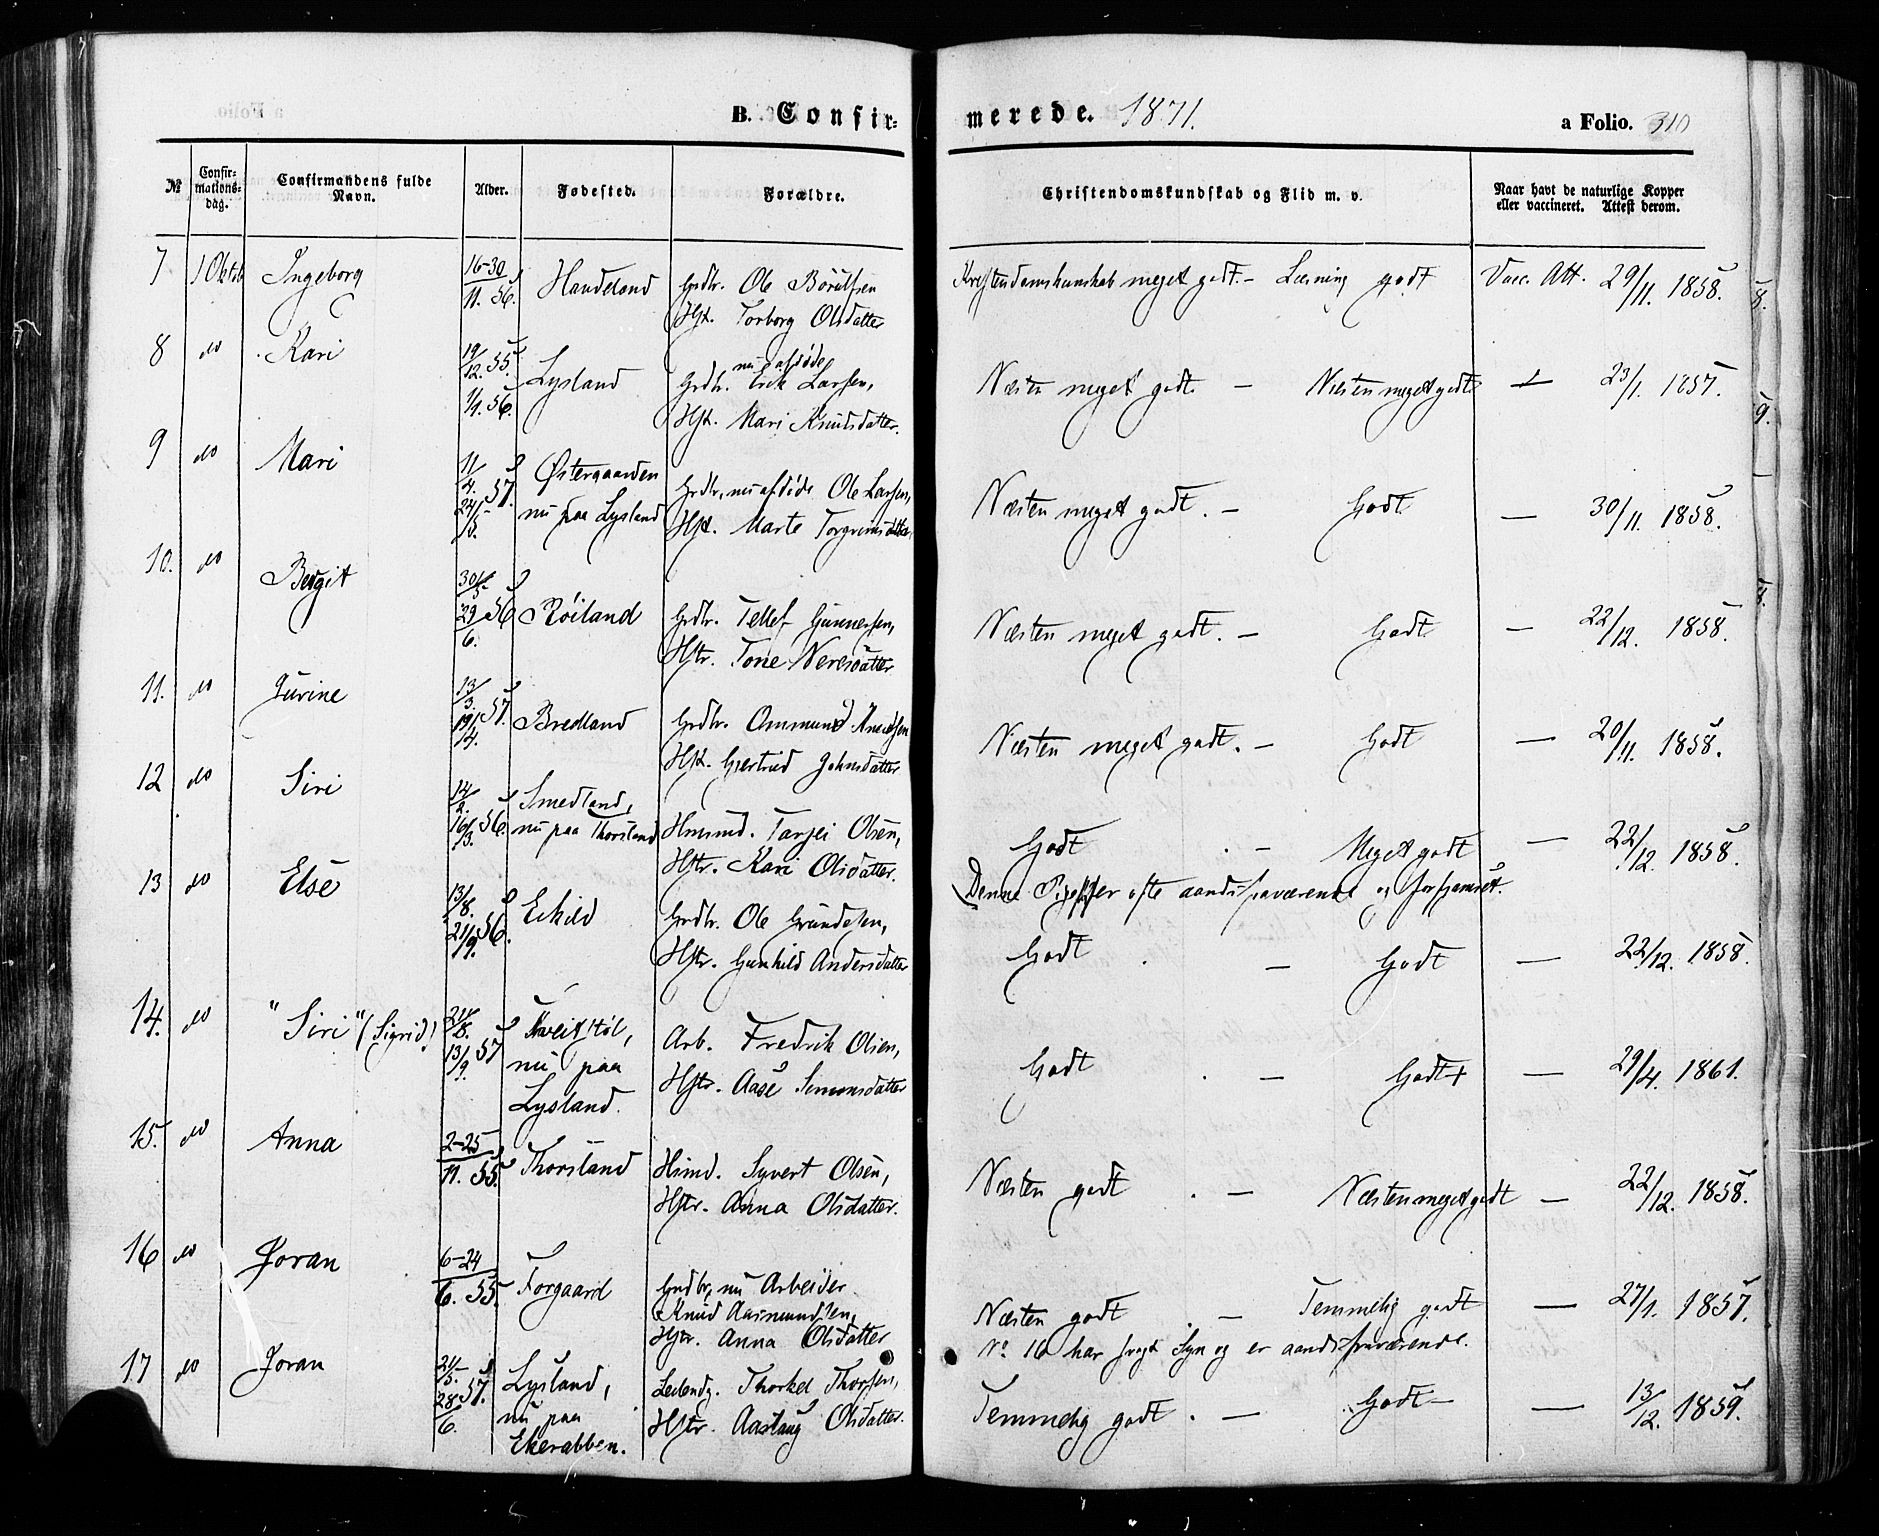 B. Confir-
merede. 1871.
a Folio. 310
№ Confir-mations-dag. Confirmandens fulde Navn. Alder. Fødested. Forældre. Christendomskundskab og Flid m. v. Naar havt de naturlige Kopper eller vaccineret. Attest derom.
7 1 Oktob Ingeborg 16-30/11. 56. Haudeland Grdbr. Ole Børulfsen meget godt. - Læsning godt Vacc. Att. 29/11. 1858.
Hst. Torborg Olsdatter
8 do Kari 19/12. 55. Lysland nu afdøde
1/1. 56. Grdbr. Erik Larsen, Næsten meget godt - Næsten meget godt - 23/1. 1857.
Hst. Mari Knudsdatter.
9 do Mari 11/4. 57. Østergaarden
24/5. nu paa Lysland Grdbr, nu afdøde Ole Larsen, Næsten meget godt. - Godt - 30/11. 1858.
Hst. Marte Torgrimsdatter
10. do Bergit 30/5 56
29/6. Røiland Grdbr. Tellef Gunnersen, Næsten meget godt. - Godt - 22/12. 1858.
Hstr. Tone Neresdatter
11. do Jurine 13/3. 57.
19/4. Bredland Grdbr. Ommund Næsten meget godt. - Godt - 20/11. 1858.
Hst. Gjertrud Johnsdatter
12 do Siri 14/2. 56. Smedland,
16/3. nu paa Thorsland Hmmd. Tarjei Olsen, Godt - Meget godt - 22/12. 1858.
Hstr. Kari Olsdatter. Denne Pige er ofte aandsfraværende og
13 do Else 13/8. 56.
21/9. Eikild Grdbr. Ole Gundersen, Godt - Godt - 22/12. 1858.
Hstr. Gunhild Andersdatter
14. do "Siri" (Sigrid) 21/8. 57
13/9. Kveitstøl, Arb. Fredrik Olsen, Godt - Godt - 29/4. 1861.
nu paa Hstr. Aase Simonsdatter
Lysland.
15. do Anna 2-25/11. 55. Thorsland Hsmd. Syvert Olsen, Næsten godt. - Næsten meget godt - 22/12. 1858.
Hstr. Anna Olsdatter.
16 do Joran 6-24/6. 55. Forgaard Grdbr, nu Arbeider
Knud Aasmundsen, Næsten godt - Temmelig godt - 27/1. 1857.
Hstr. Anna Olsdatter No 16 har svagt Syn og er aandsfraværende.
17 do Joran 21/5. 57.
28/6. Lysland, Leilendg. Thorkel Thorsen, Temmelig godt. - Godt - 13/12. 1859.
nu paa Hstr. Aaslaug Olsdatter.
Ekerabben.